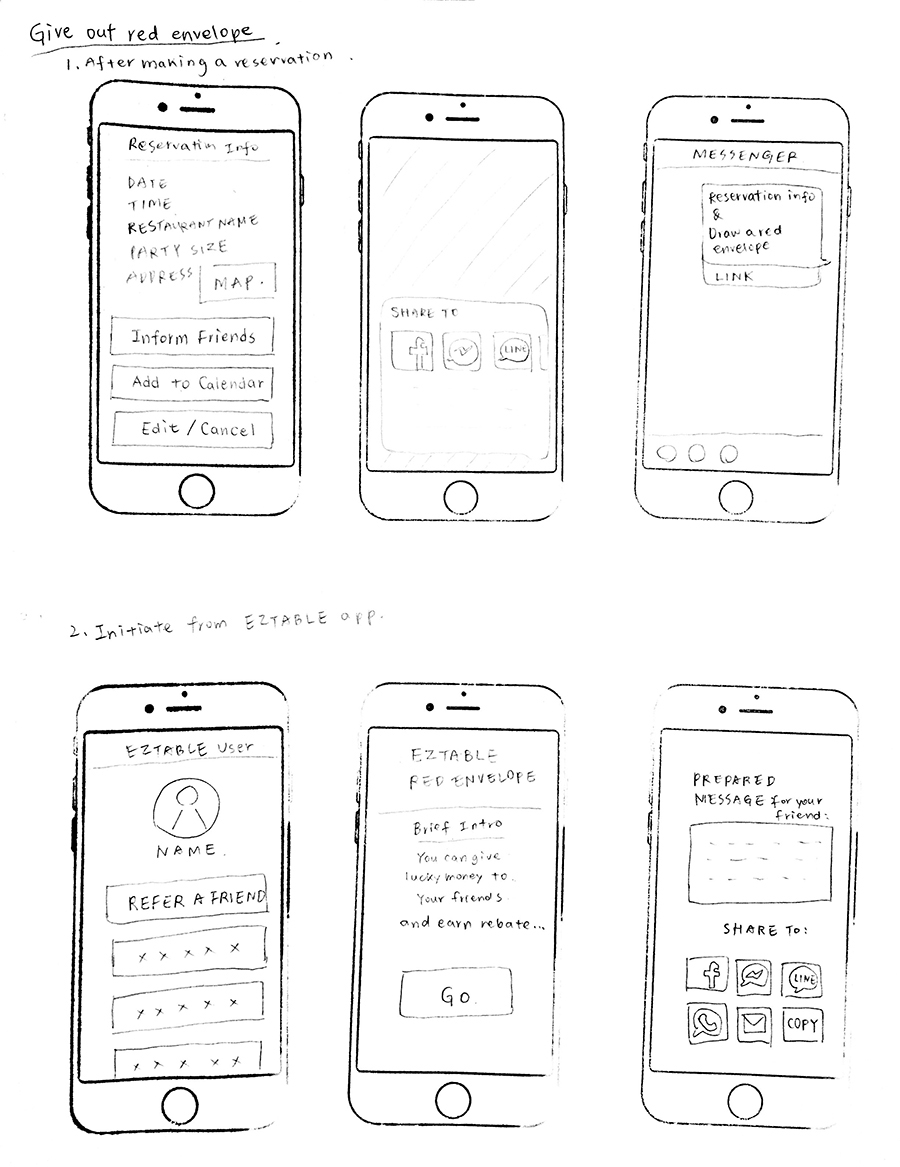 Give out red envelope
1. After making a reservation.
Reservation Info
DATE
TIME
RESTAURANT NAME
PARTY SIZE
ADDRESS
MAP.
Inform Friends
Add to Calendar
Edit / Cancel
SHARE TO
LINE
MESSENGER
Reservation info
&
Draw a red
envelope
LINK
2. Initiate from EZTABLE app.
EZTABLE User
NAME.
REFER A FRIEND
x x x x x
x x x x x
x x x x x
EZTABLE
RED ENVELOPE
Brief Intro
You can give
lucky money to
your friends
and earn rebate...
Go.
PREPARED
MESSAGE for your
friend:
SHARE TO:
LINE
COPY